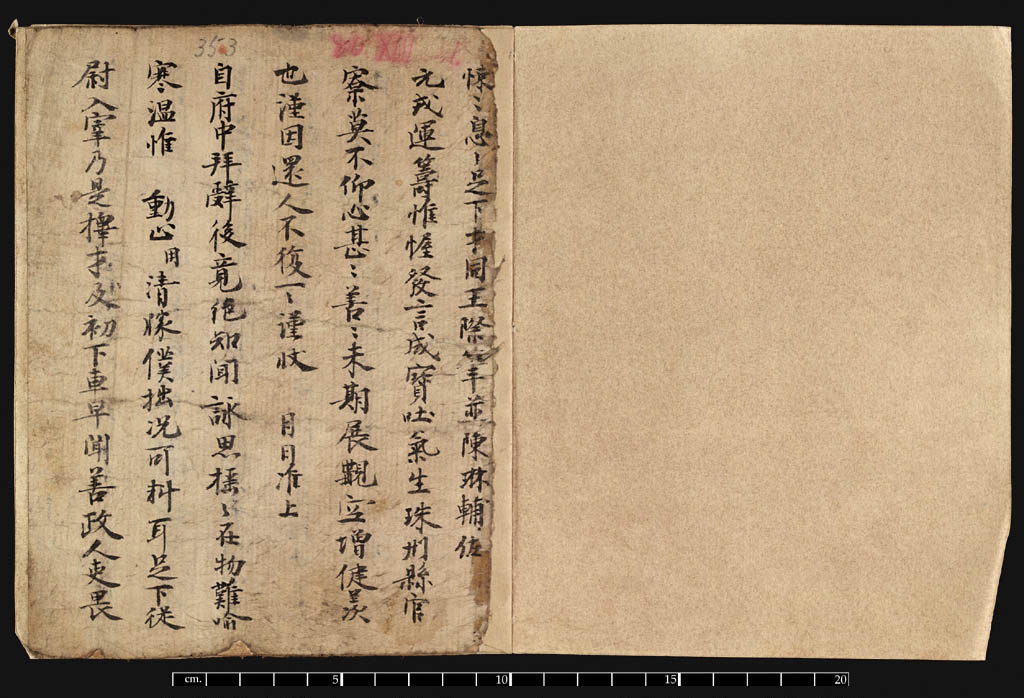 悚〻息〻足下才同王際筆並陳琳輔佐
元戎運籌惟幄發言成寶吐氣生珠州縣官
寮莫不仰心甚〻善〻未期展覿空增健羨
也謹因還人不復一〻謹狀 月日准上
自府中拜辭後竟絶知聞詠思揺〻在物難喻
寒温惟 動止用清勝僕拙况可料耳足下從
尉入宰乃是擇才及初下車早聞善政人吏畏
353
cm. 5 10 15 20